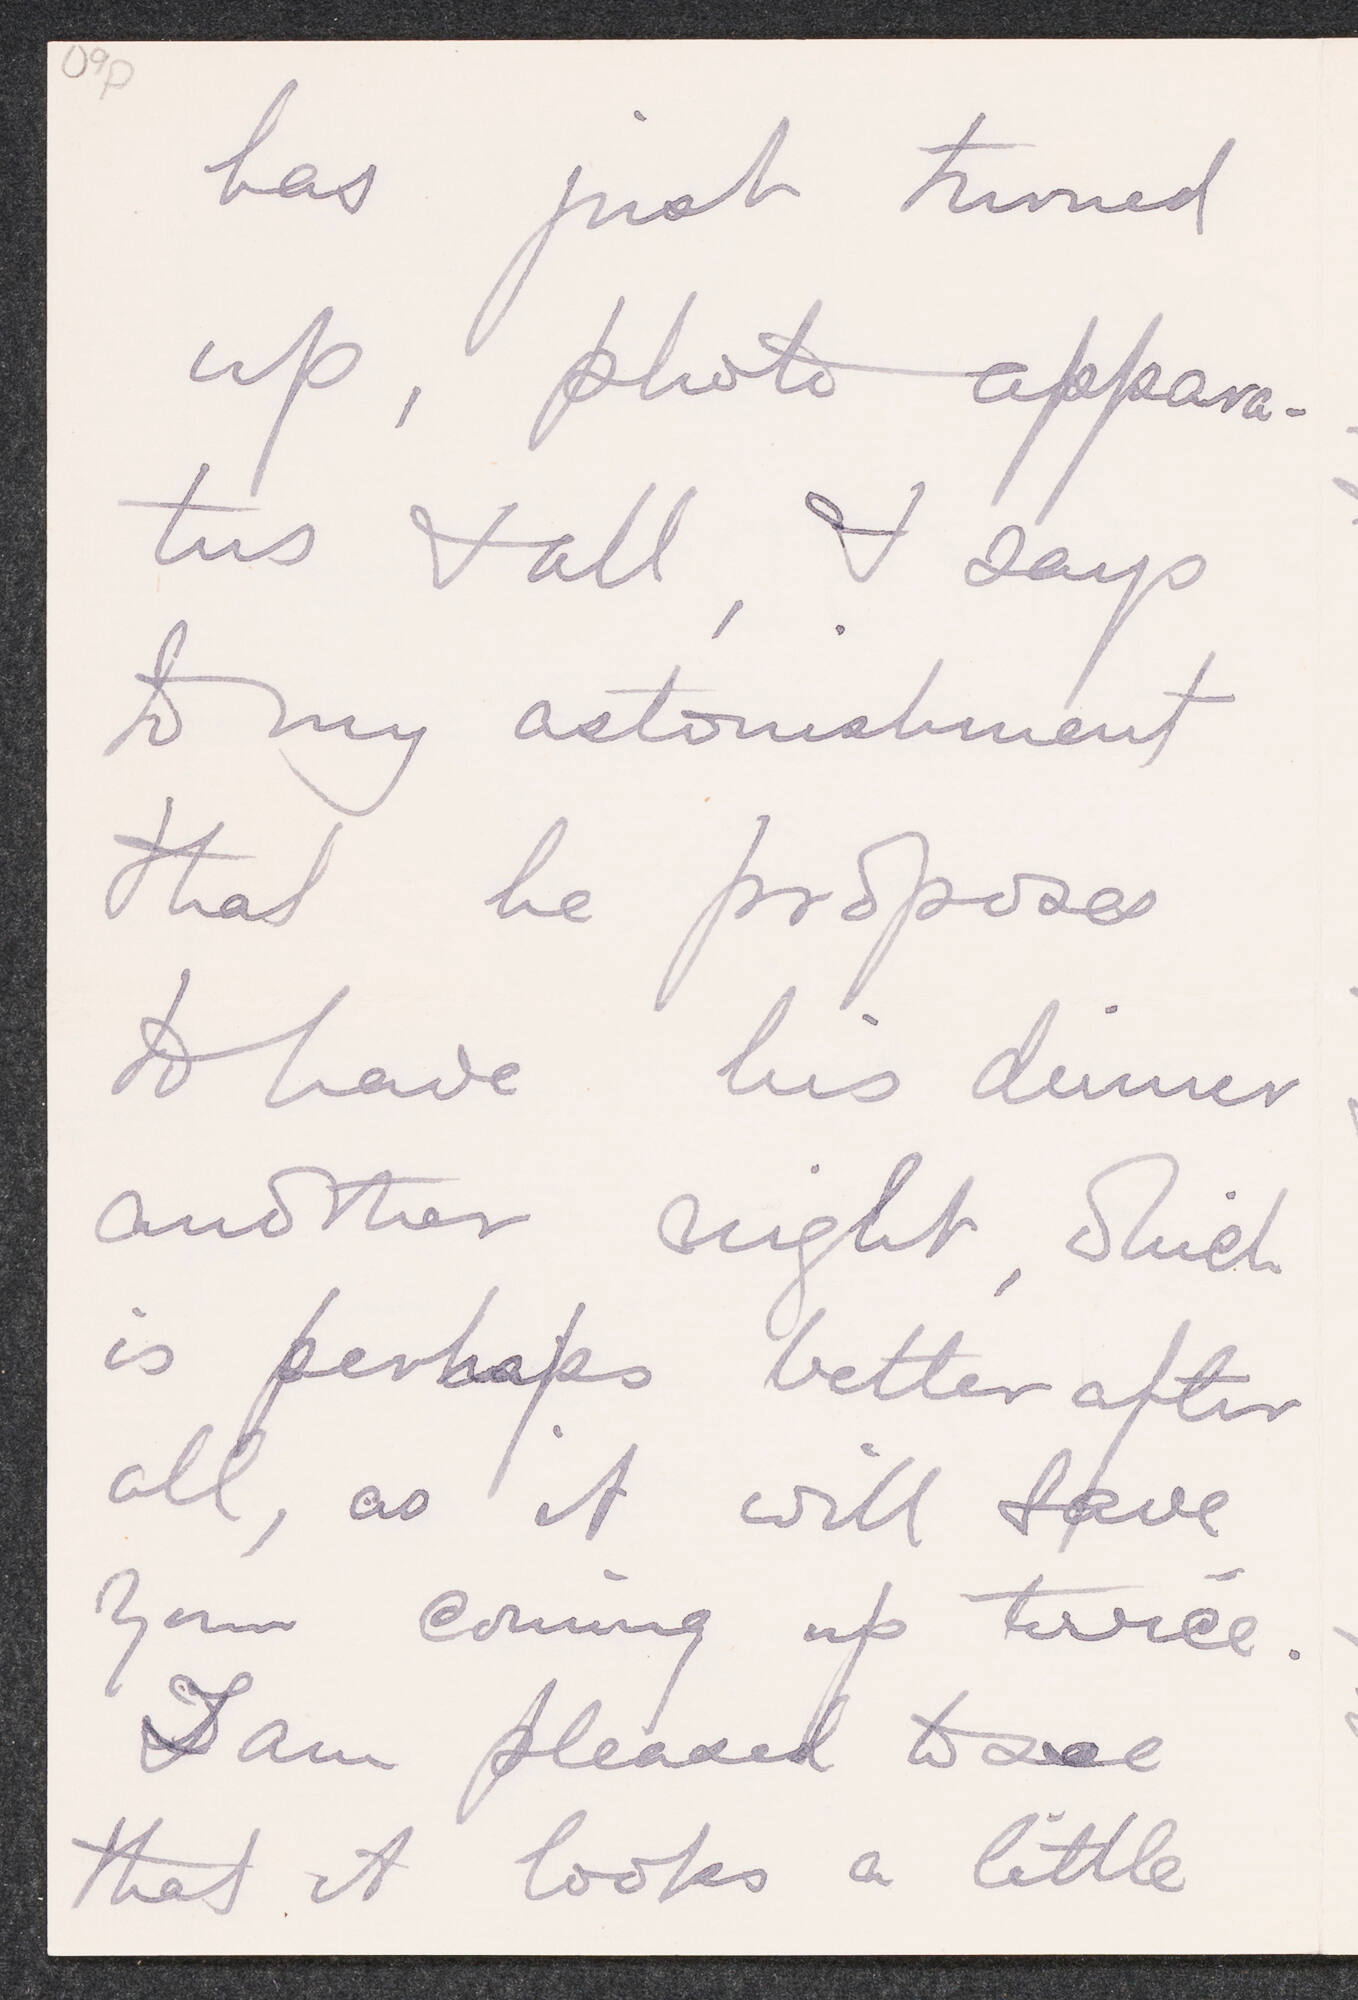 has just turned
up, photo appara-
tus & all, & says
to my astonishment
that he proposes
to have his dinner
another night, which
is perhaps better after
all, as it will save
your coming up twice.
I am pleased to see
that it looks a little